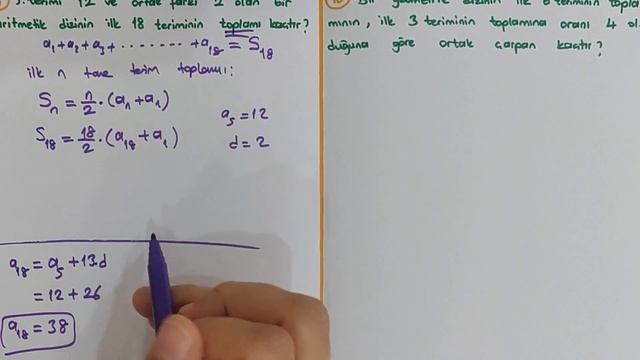 5. terimi 12 ve ortak farkı 2 olan bir
aritmetik dizinin ilk 18 teriminin toplamı kaçtır?
a₁+a₂+a₃+ ........ +a₁₈ = S₁₈
ilk n tane terim toplamı:
Sₙ = n/2 · (aₙ+a₁)
S₁₈ = 18/2 · (a₁₈+a₁)
a₅ = 12
d = 2
a₁₈ = a₅ + 13.d
= 12 + 26
a₁₈ = 38
Bir geometrik dizinin ilk 6 teriminin topla
mının, ilk 3 teriminin toplamına oranı 4 ol
duğuna göre ortak çarpan kaçtır?